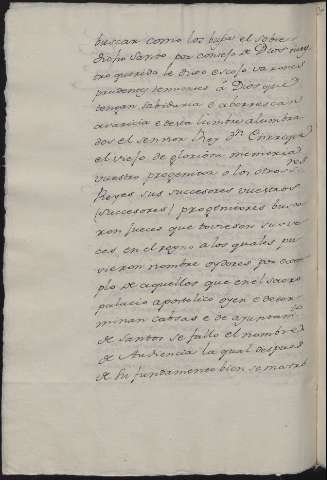 buscar como los busco el sobre
dicho santo por consejo de Dios nues
tro querido le dixo escoje varones
prudentes temerosos à Dios que
tengan sabiduria e aborrescan
avaricia e desta lumbre alumbra
dos el sennor Rey Dn Enrrique
el viejo de gloriosa memoria
vuestro progenitor e los otros
Reyes sus succesores vuestros
(succesores) progenitores busca
ron jueces que toviesen sus ve
ces, en el reyno a los quales pu
sieron nombre oydores por exem
plo de aquellos que en el sacro
palacio apostolico oyen e deter
minan cabsas e de ayuntamto
de santos se fallo el nombre
de Audiencia la qual despues
de su fundamento bien se mostrò